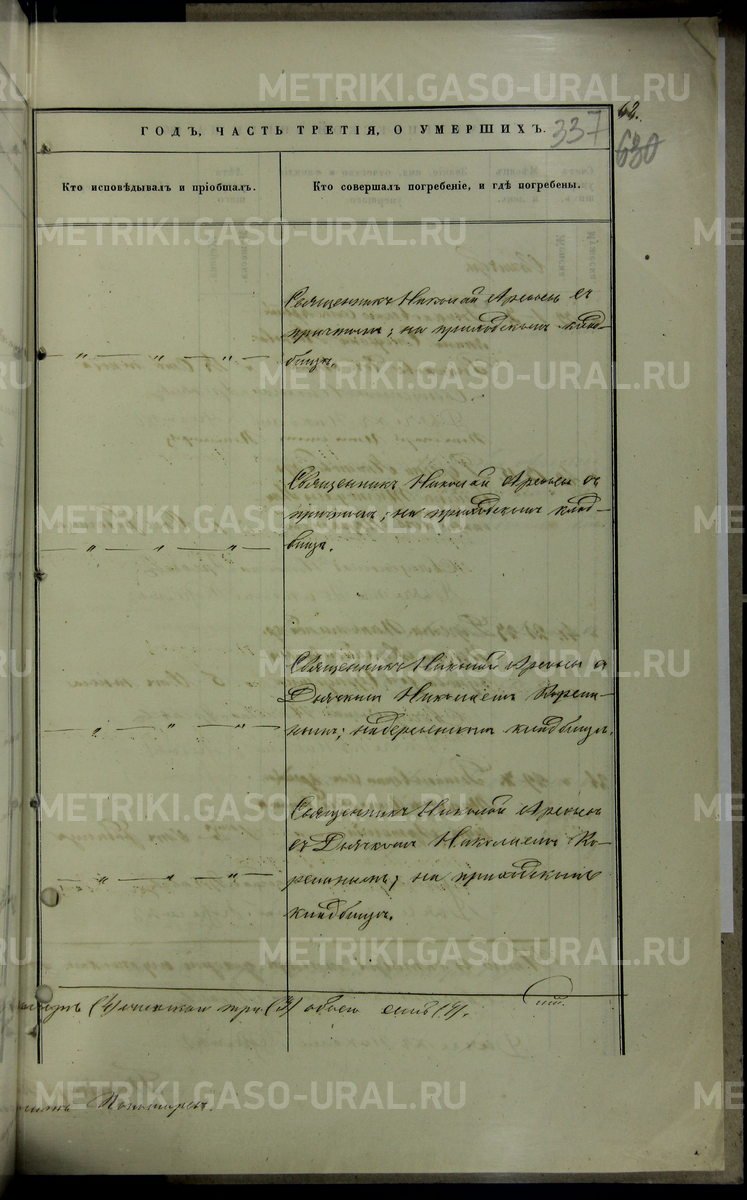 METRIKI.GASO-URAL.RU
62.
ГОДЪ, ЧАСТЬ ТРЕТІЯ, О УМЕРШИХЪ.
337
630
Кто исповѣдывалъ и пріобщалъ.
Кто совершалъ погребеніе, и гдѣ погребены.
Священникъ Николай Арефьевъ съ
причтомъ; на приходскомъ клад-
бищѣ.
— „ — „ — „ —
Священникъ Николай Арефьевъ съ
причтомъ; на приходскомъ клад-
бищѣ.
— „ — „ — „ —
Священникъ Николай Арефьевъ съ
Дьячкомъ Николаемъ
на деревенскомъ кладбищѣ.
— „ — „ — „ —
Священникъ Николай Арефьевъ
съ Дьячкомъ Николаемъ
на приходскомъ
кладбищѣ.
— „ — „ — „ —
(4) женска три (3) обоего семь (7).